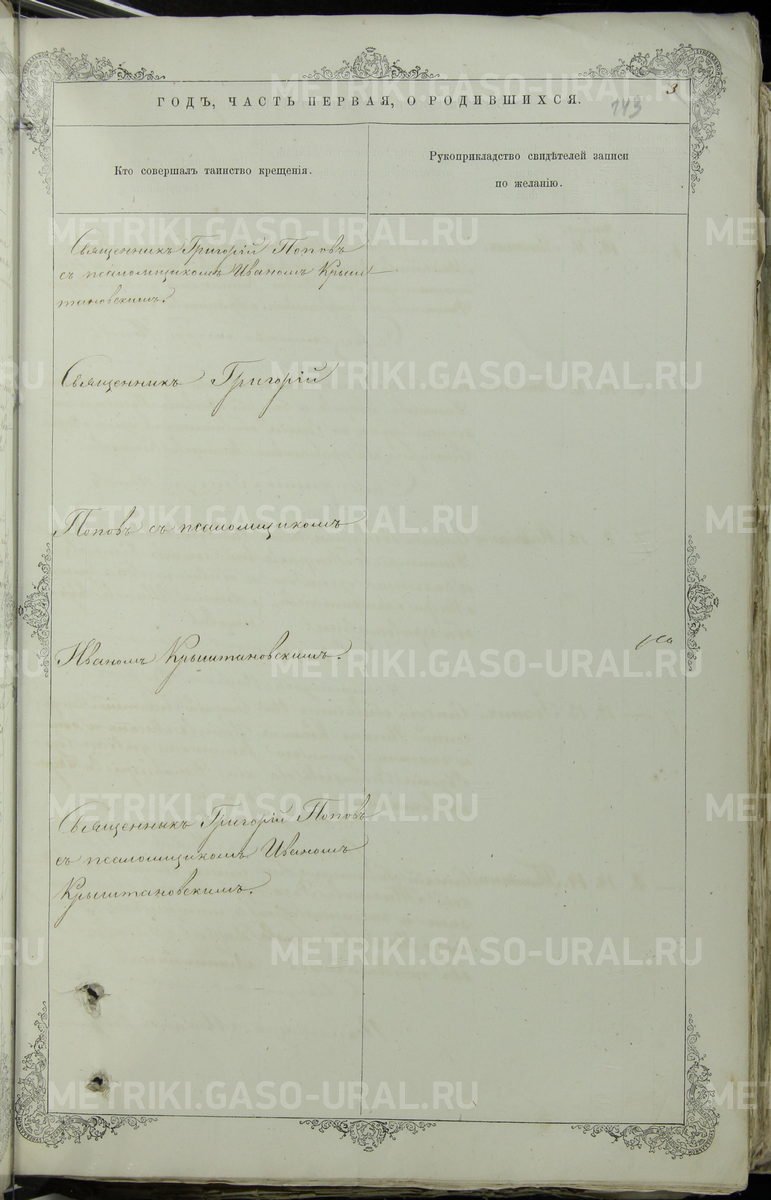 3
ГОДЪ, ЧАСТЬ ПЕРВАЯ, О РОДИВШИХСЯ.
143
Кто совершалъ таинство крещенія.
Рукоприкладство свидѣтелей записи
по желанію.
Священникъ Григорій Поповъ
съ псаломщикомъ Иваномъ Крыш
тановскимъ.
Священникъ Григорій
Поповъ съ псаломщикомъ
Иваномъ Крыштановскимъ.
Священникъ Григорій Поповъ
съ псаломщикомъ Иваномъ
Крыштановскимъ.
METRIKI.GASO-URAL.RU